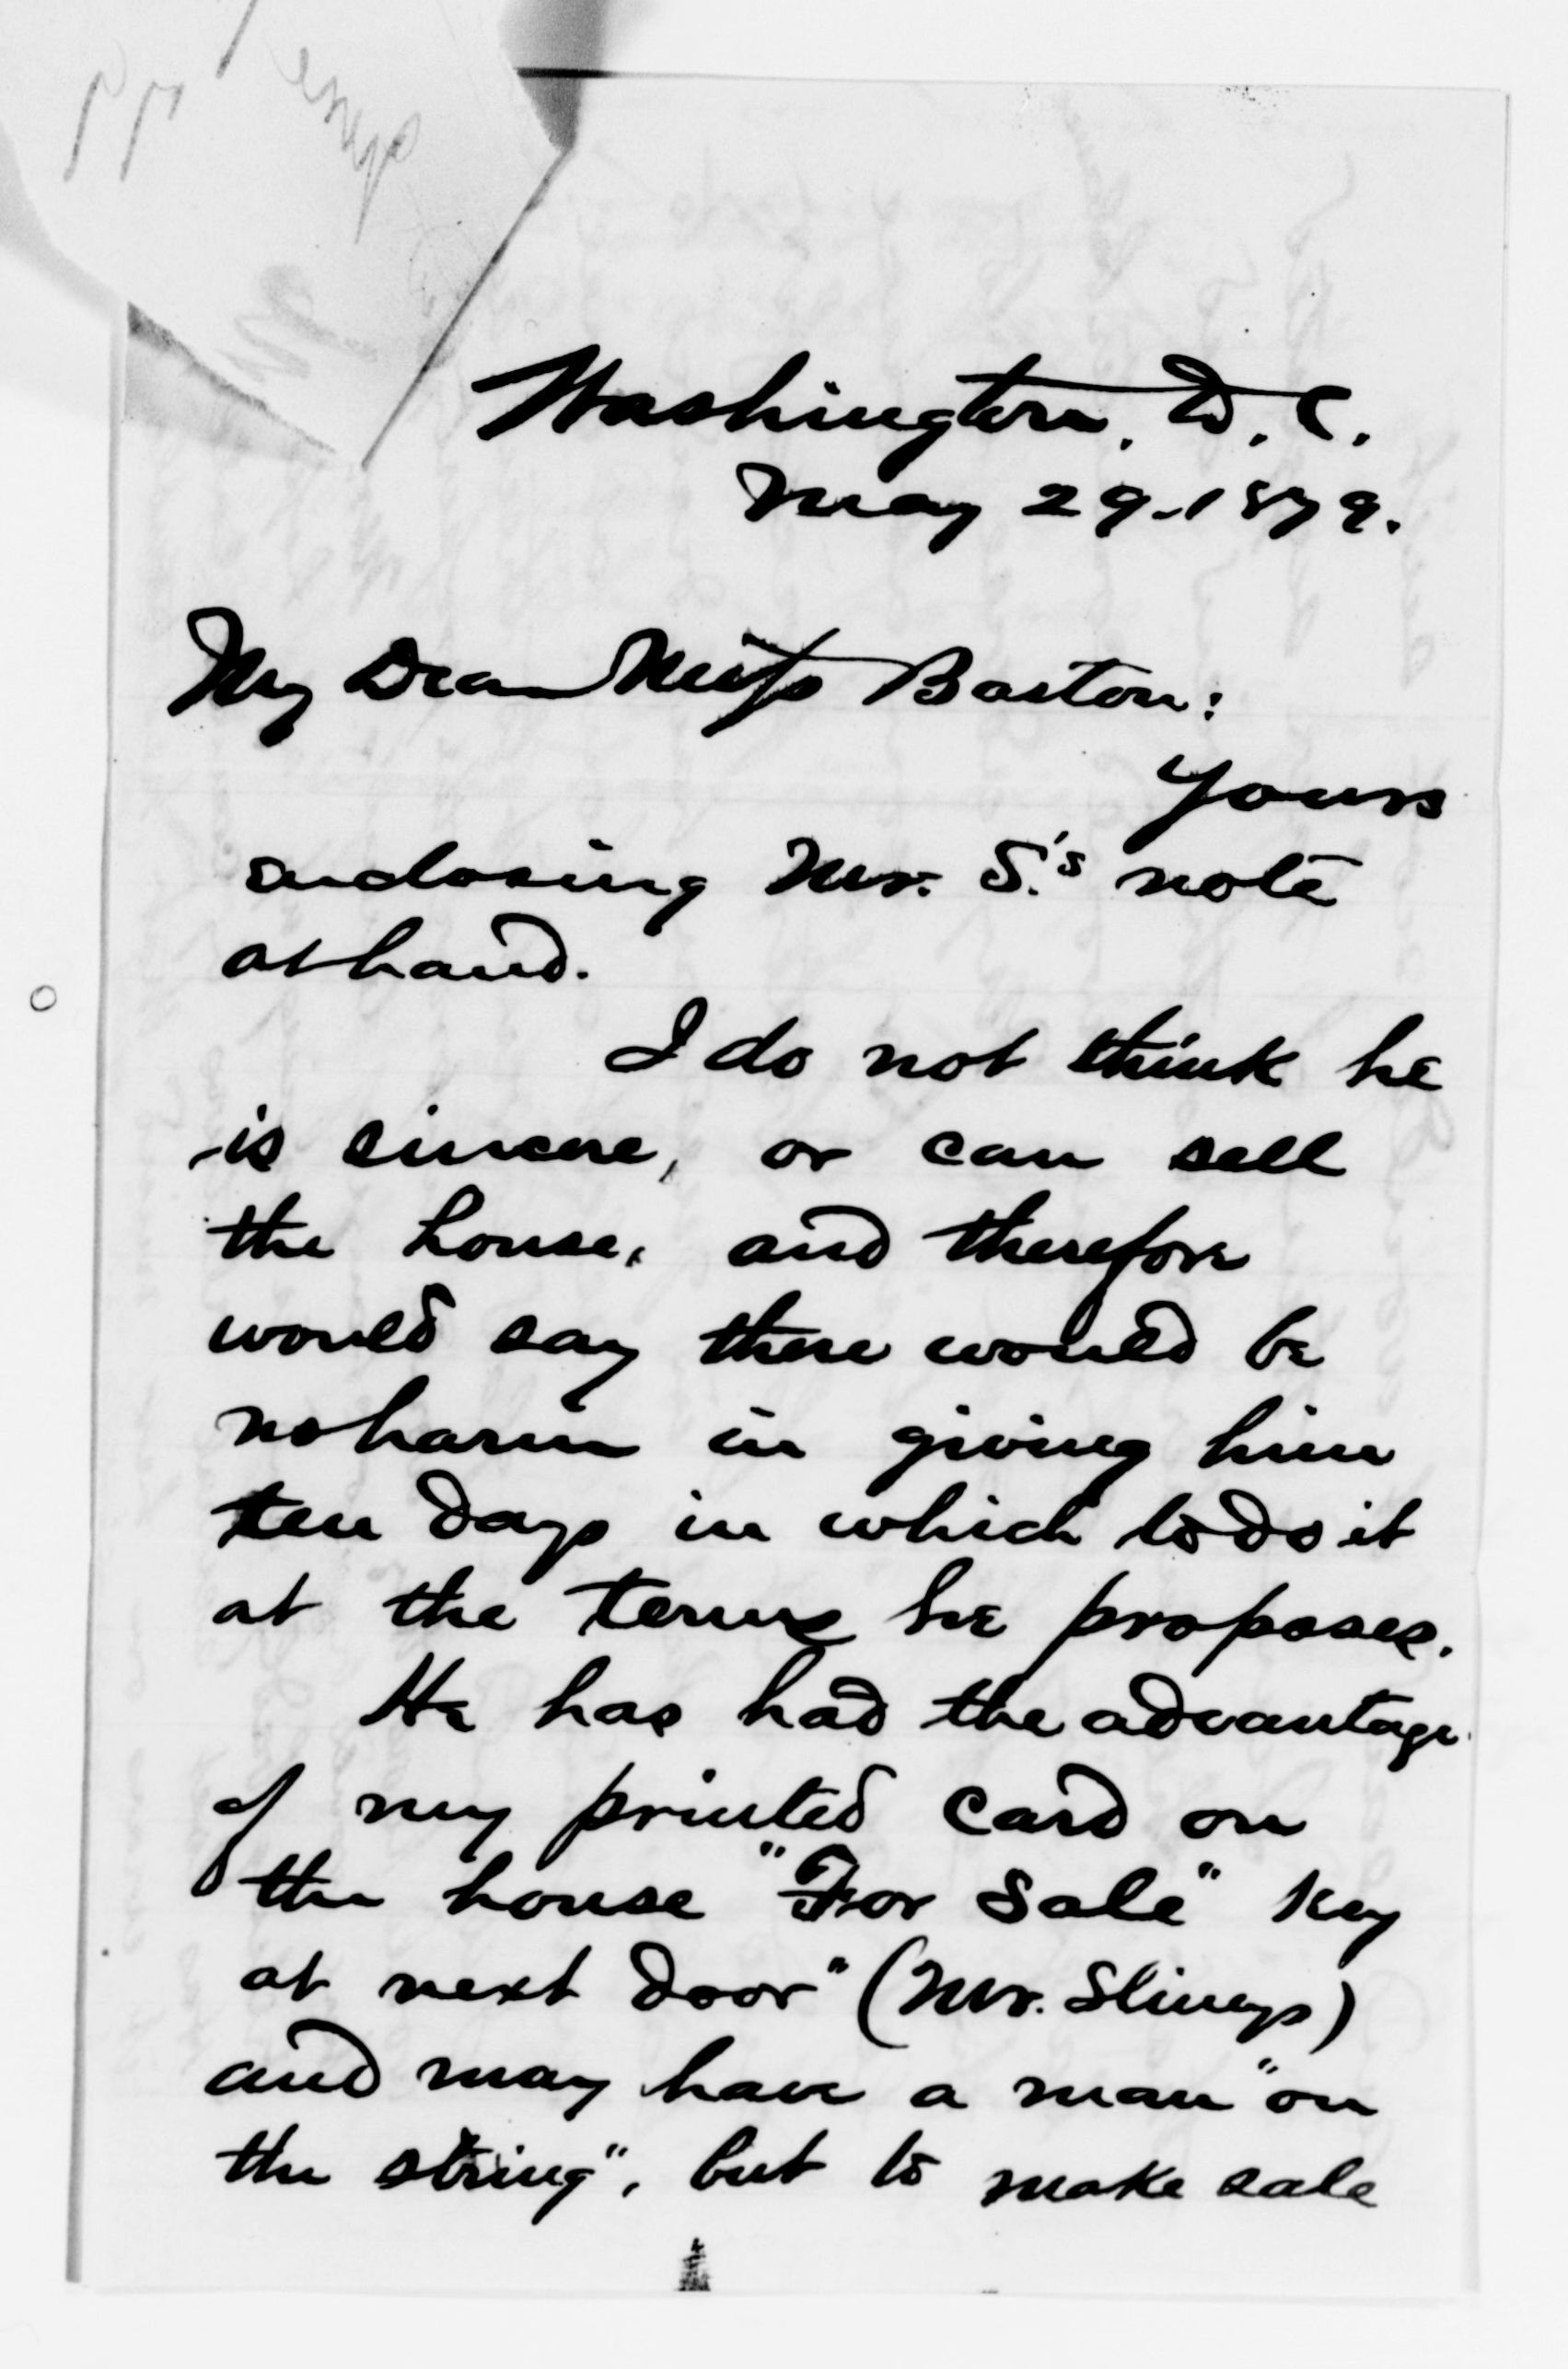 Washington, D.C.
May 29-1879.
My Dear Miss Barton:
Yours
enclosing Mr. S.'s note
at hand.
I do not think he
is sincere, or can sell
the house, and therefore
would say there would be
no harm in giving him
ten days in which to do it
at the terms he proposes.
He has had the advantage
of my printed card on
the house "For Sale" Key
at next door" (Mr. Slineys)
and may have a man "on
the string", but to make sale